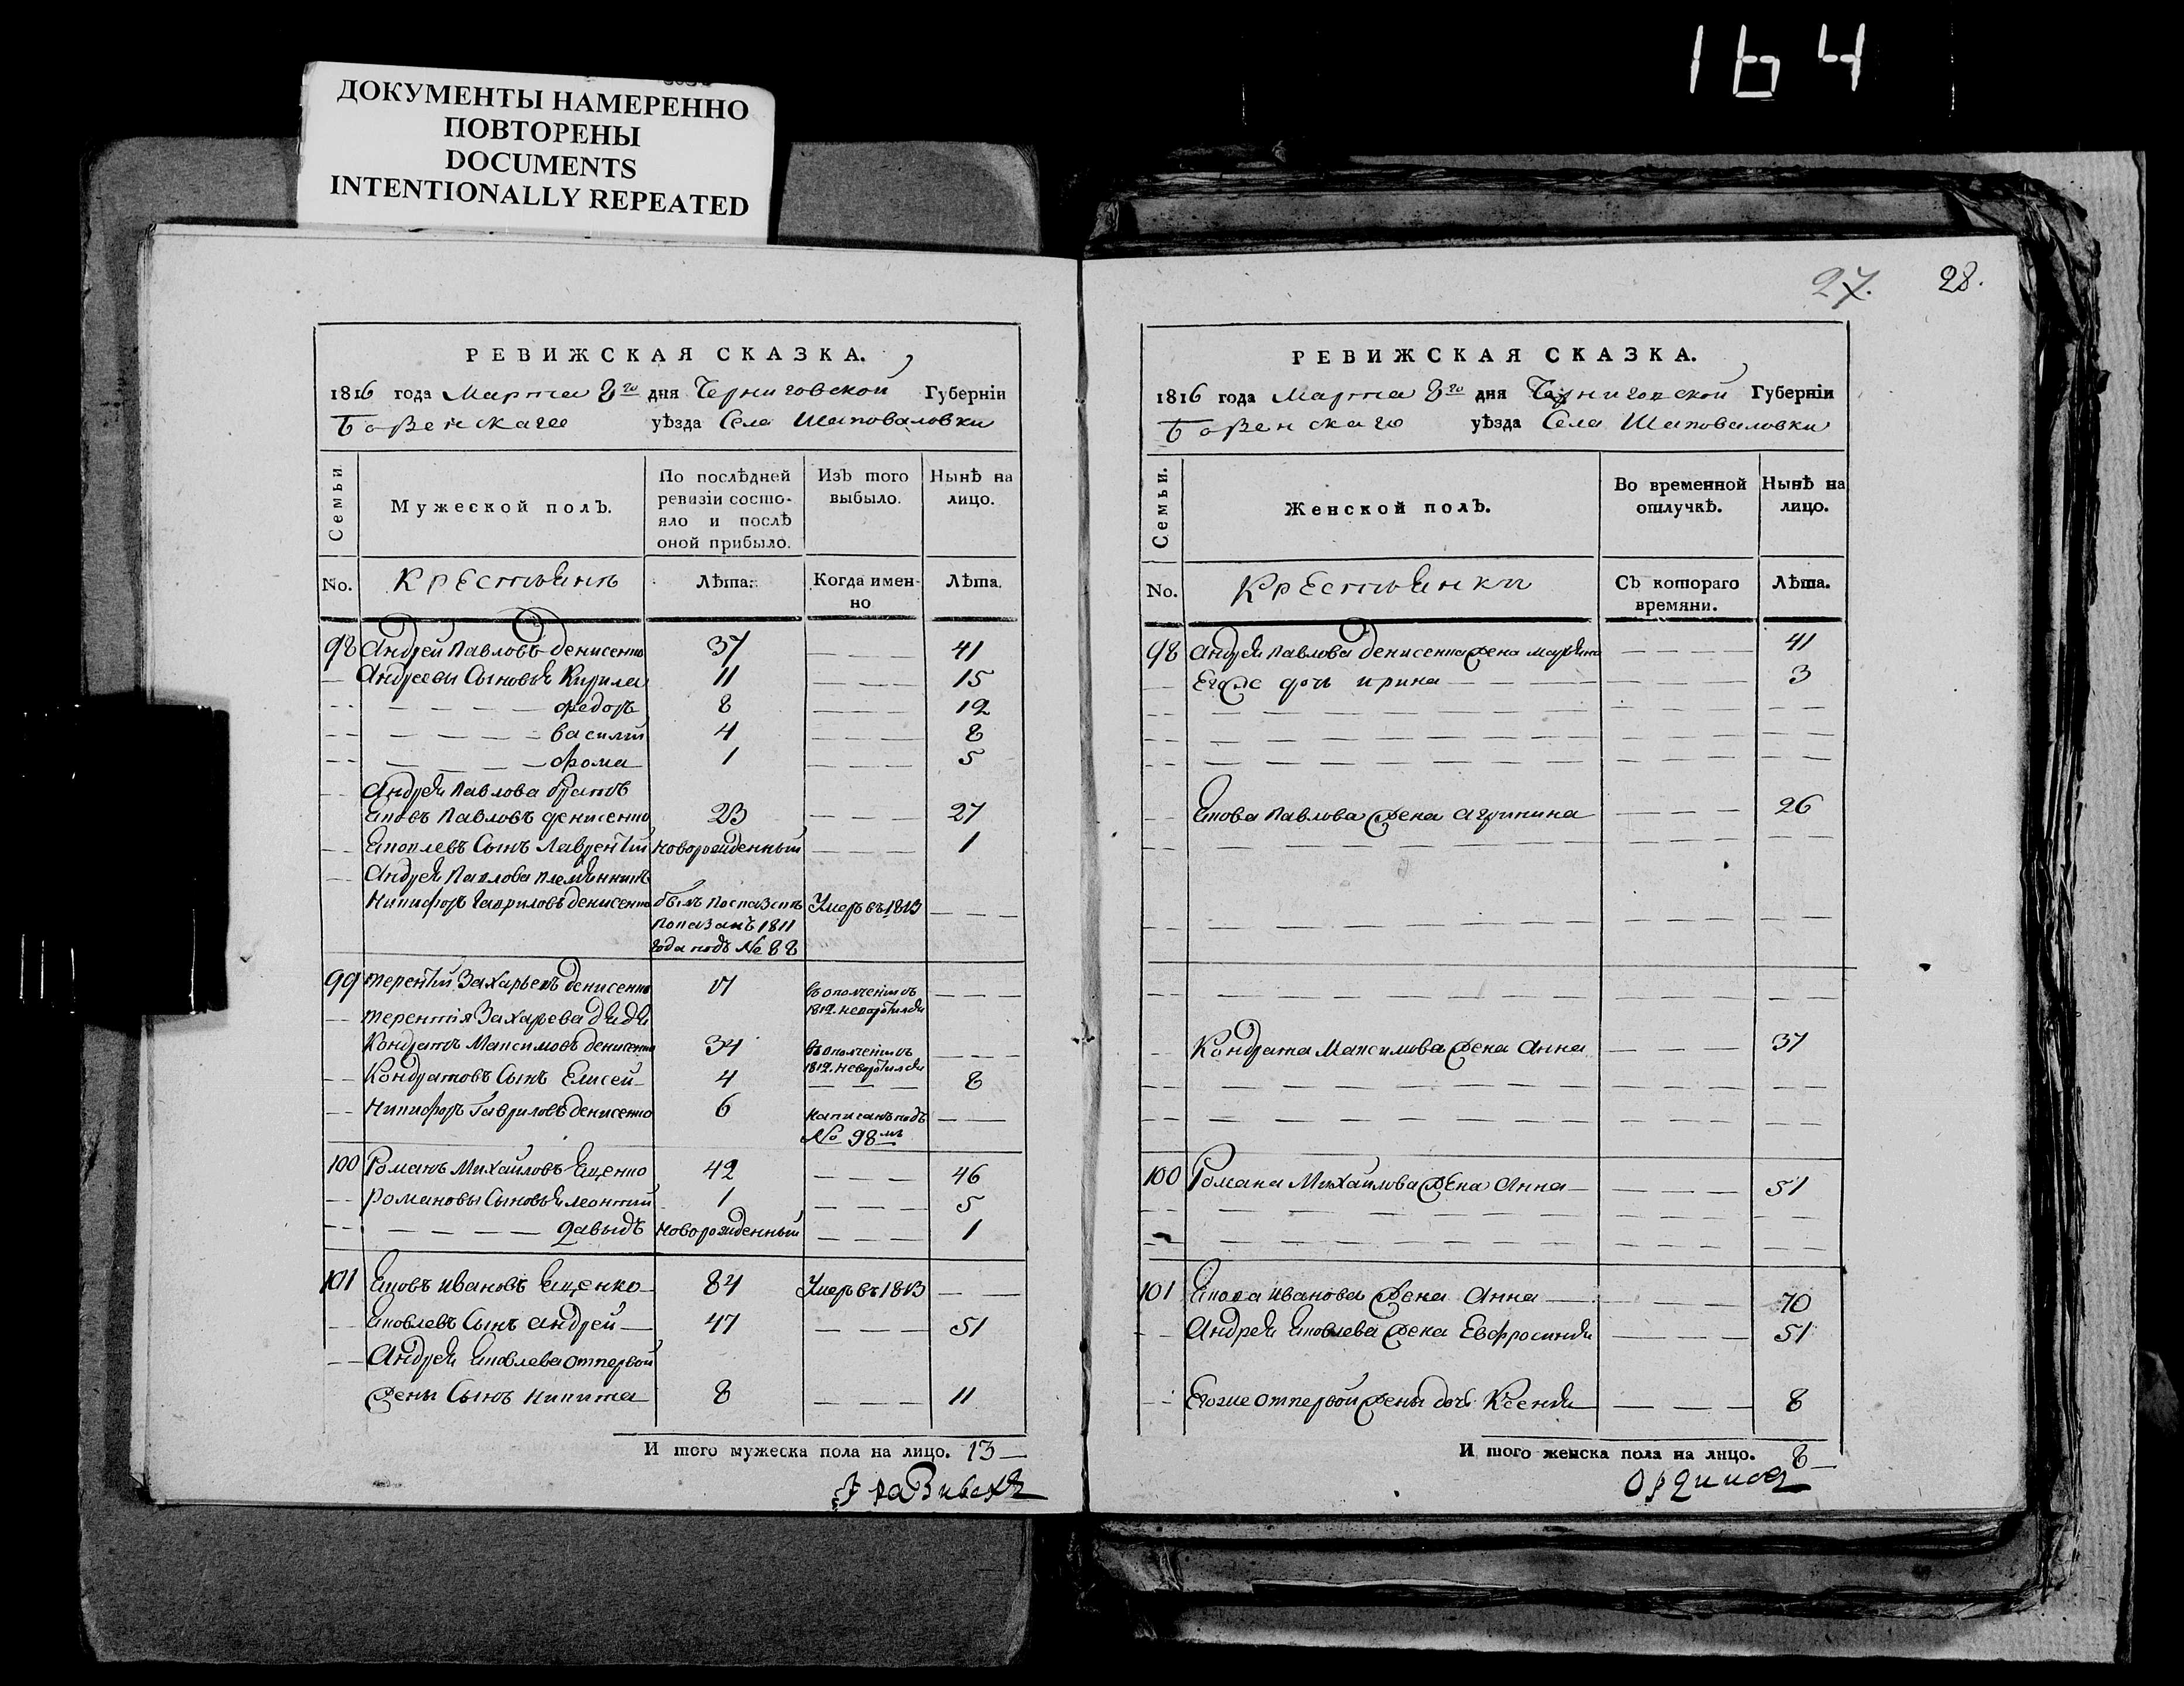 164
ДОКУМЕНТЫ НАМЕРЕННО
ПОВТОРЕНЫ
DOCUMENTS
INTENTIONALLY REPEATED
РЕВИЖСКАЯ СКАЗКА.
1816 года Марта 8го дня Черниговской Губерніи
Борзенскаго уѣзда Села Шаповаловки
Семьи.
Мужеской полЪ.
По послѣдней ревизіи состо-яло и послѣ оной прибыло.
ИзЪ того выбыло.
Нынѣ на лицо.
No. Крестьянъ Лѣта. Когда имен-но Лѣта.
98 Андрей Павловъ денисенко 37 — — — 41
— Андреевы Сыновья Кирила 11 — — — 15
— — — — — — федоръ 8 — — — 12
— — — — — — василий 4 — — — 8
— — — — — — фома 1 — — — 5
— Андрея Павлова братъ
Яковъ Павловъ денисенко 23 — — — 27
— Яковлевъ Сынъ Лаврентій новорожденный — — — 1
— Андрея Павлова племянникъ
Никифоръ Гавриловъ денисенко былъ по сказкѣ Умеръ въ 1813 — — —
показанъ 1811
года подъ № 88
99 терентій Захарьевъ денисенко 17 въ ополченіи съ — — —
1812. невозвратился
— терентія Захарьева дядя
Кондратъ Максимовъ денисенко 34 въ ополченіи съ — — —
1812. невозвратился
— Кондратовъ Сынъ Елисей 4 — — — 8
— Никифоръ Гавриловъ денисенко 6 написанъ подъ — —
№ 98мъ
100 Романъ Михайловъ Ященко 42 — — — 46
— Романовы Сыновья леонтий 1 — — — 5
— — — — — давыдъ новорожденный — — — 1
101 Яковъ Ивановъ Ященко 84 Умеръ въ 1813 — —
— Яковлевъ Сынъ андрей 47 — — — 51
— Андрея Яковлева отпервой
жены Сынъ никита 8 — — — 11
И того мужеска пола на лицо. 13 —
27. 28.
РЕВИЖСКАЯ СКАЗКА.
1816 года Марта 8го дня Черниговской Губерніи
Борзенскаго уѣзда Села Шаповаловки
Семьи.
Женской полЪ.
Во временной отлучкѣ.
Нынѣ на лицо.
No. Крестьянки СЪ котораго времяни. Лѣта.
98 Андрея Павлова денисенка жена Марина — — — 41
— Егоже дочь ирина — — — 3
— Якова Павлова жена агрипина — — — 26
— Кондрата Максимова жена анна — — — 37
100 Романа Михайлова жена анна — — — 51
101 Якова Иванова жена Анна — — — 70
— Андрея Яковлева жена Евфросинія — — — 51
— Егоже отпервой жены дочь Ксенія — — — 8
И того женска пола на лицо. 8 —